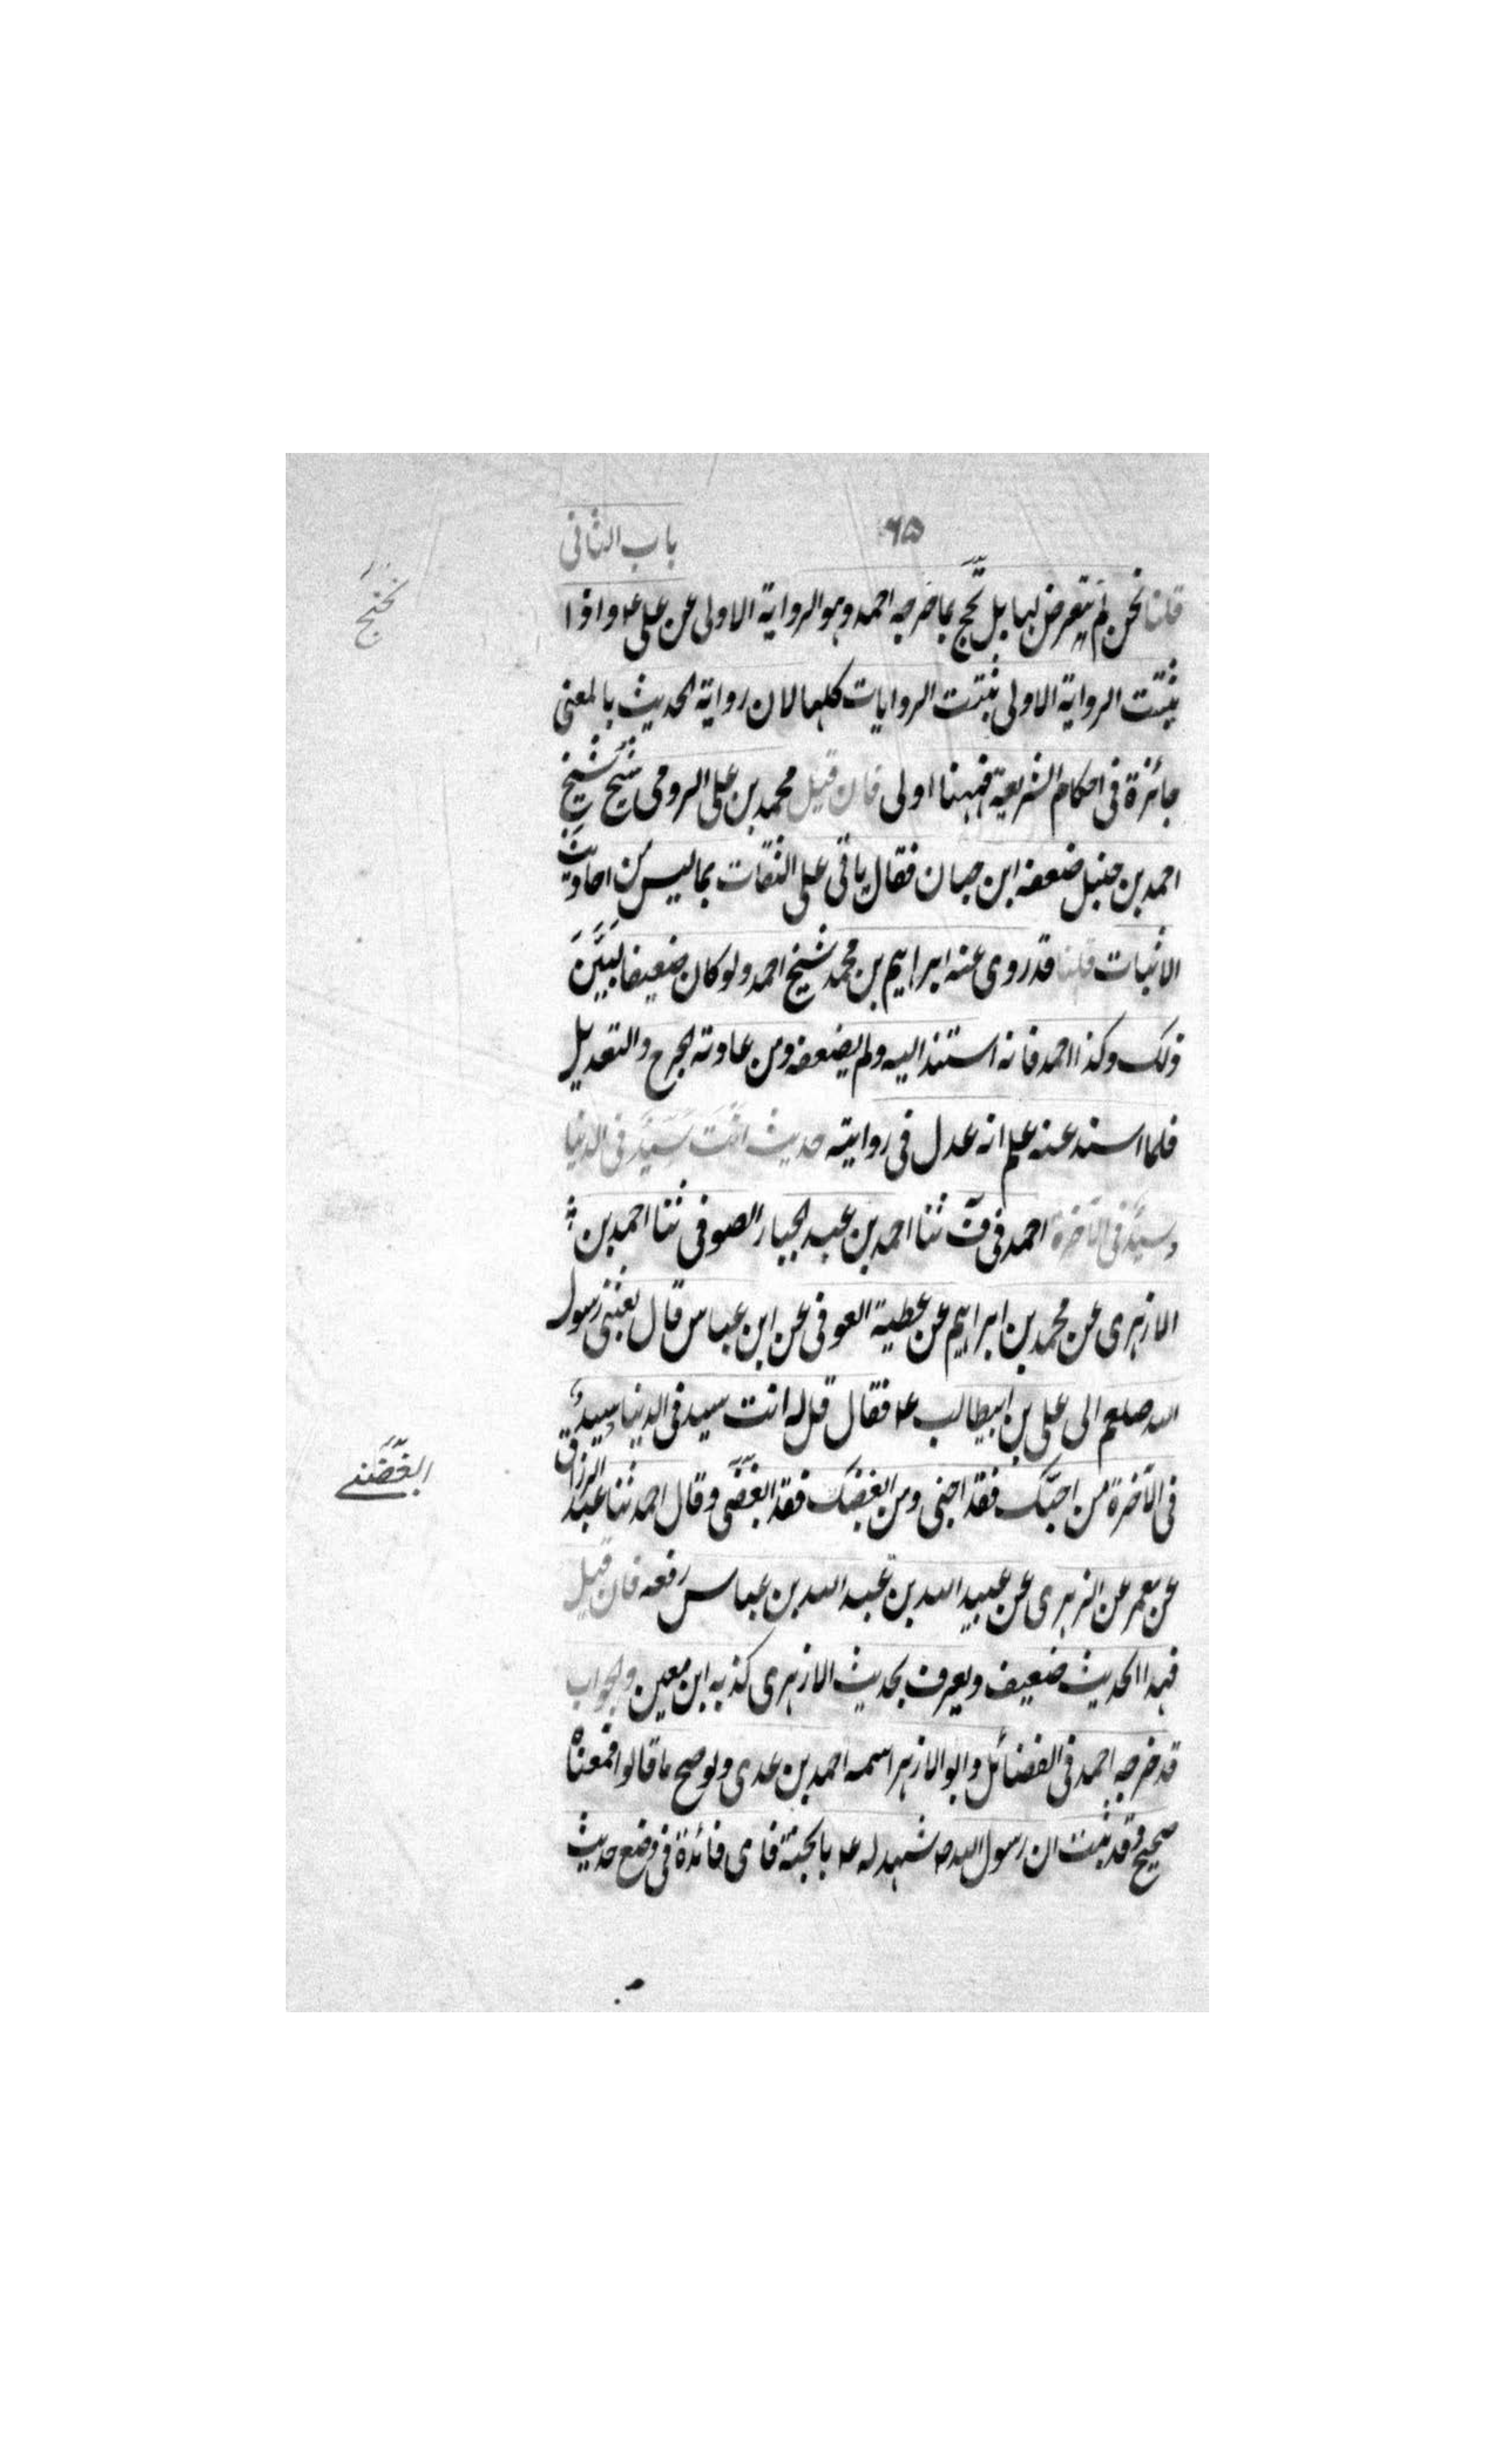 ۶۵ باب الثانى
قلنا نحن لم نتعرض لها بل نحتج بما خرجه احمد وهو الرواية الاولى عن على ع واذا
ثبتت الرواية الاولى ثبتت الروايات كلها لان رواية الحديث بالمعنى
جائزة فى احكام الشريعة فههنا اولى فان قيل محمد بن على الرومى شيخ شيخ
احمد بن حنبل ضعفه ابن حبان فقال ياتى على الثقات بما ليس من احاديث
الاثبات قلنا قد روى عنه ابراهيم بن محمد شيخ احمد ولو كان ضعيفا لبيّن
ذلك وكذا احمد فانه استند اليه ولم يضعفه ومن عادته الجرح والتعديل
فلما اسند عنه علم انه عدل فى روايته حديث انت سيّد فى الدنيا
وسيّد فى الآخرة احمد فى ف ثنا احمد بن عبد الجبار الصوفى ثنا احمد بن
الازهرى عن محمد بن ابراهيم عن عطية العوفى عن ابن عباس قال بعثنى رسول
الله صلعم الى على بن ابيطالب ع فقال قل له انت سيد فى الدنيا وسيد
فى الآخرة من احبّك فقد احبنى ومن ابغضك فقد ابغضنى وقال احمد ثنا عبد الرزاق
عن معمر عن الزهرى عن عبيد الله بن عبد الله بن عباس رفعه فان قيل
فهذا الحديث ضعيف ويعرف بحديث الازهرى كذبه ابن معين والجواب
قد خرجه احمد فى الفضائل وابو الازهر اسمه احمد بن عدى ولو صح ما قالوا فمعناه
صحيح وقد ثبت ان رسول الله ص شهد له ع بالجنة فاى فائدة فى وضع حديث
نحتج
ابغضنى